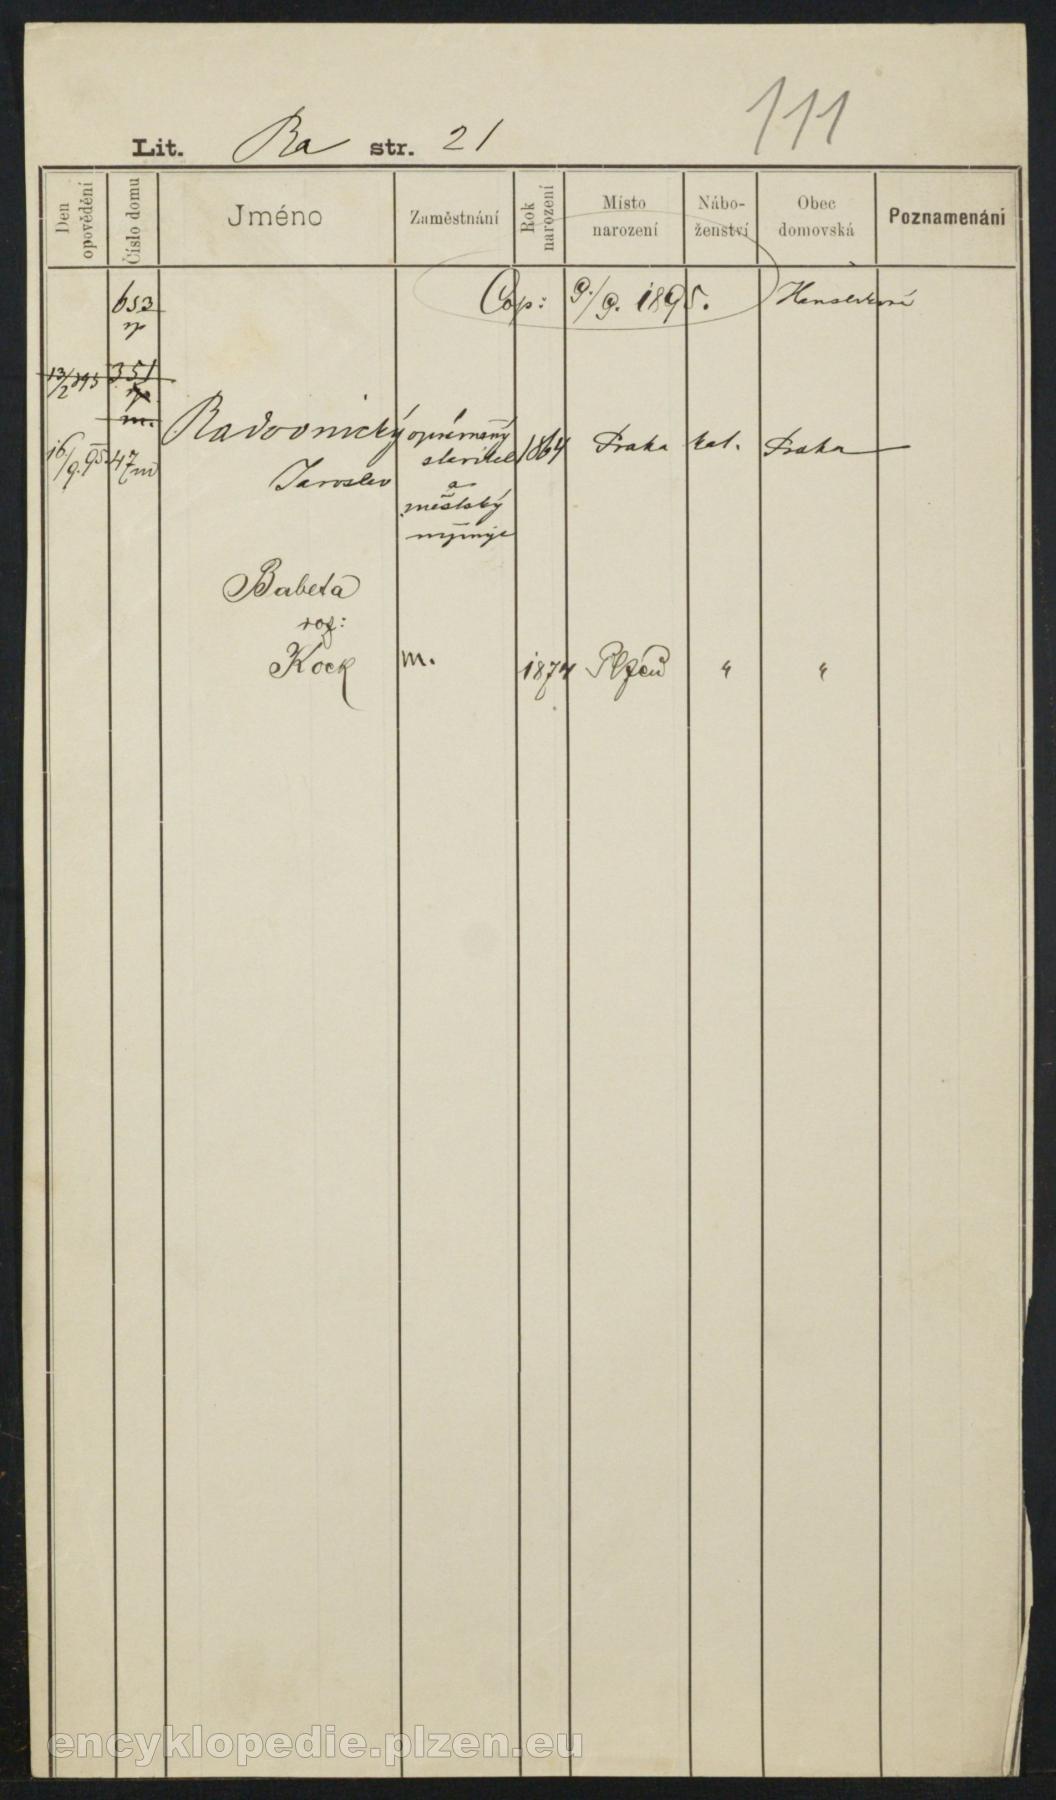 111
Lit. Ra str. 21
Den opovědění
Číslo domu
Jméno
Zaměstnání
Rok narození
Místo narození
Nábo-
ženství
Obec domovská
Poznamenání
653
Cop: 9./9. 1895.
13/2 895 351
m.
Radovnický oprávněný
16/9. 95. 47 m stavitel 1864 Praha kat. Praha
Jaroslav a
městský
Babeta
roz:
Kock m. 1874 Plzeň " "
encyklopedie.plzen.eu